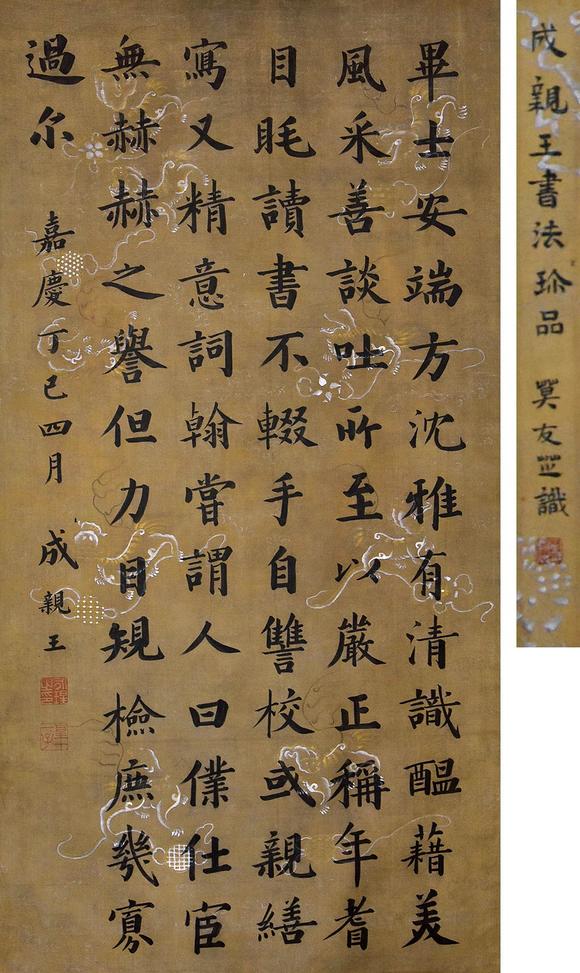 畢士安端方沈雅有清識醖藉美
風采善談吐所至以嚴正稱年耆
目眊讀書不輟手自讐校或親繕
寫又精意詞翰嘗謂人曰僕仕宦
無赫赫之譽但力自規檢庶幾寡
過尔
嘉慶丁巳四月 成親王
成親王書法珍品 莫友芝識